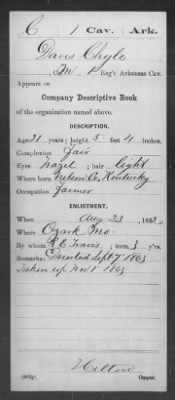 C 1 Cav. Ark.
Davis Chyle
M, 1 Reg't Arkansas Cav.
Appears on
Company Descriptive Book
of the organization named above.
DESCRIPTION.
Age 21 years; height 5 feet 4 inches.
Complexion Fair
Eyes hazel; hair light
Where born Nelson Co, Kentucky
Occupation farmer
ENLISTMENT.
When Aug 23, 1862.
Where Ozark Mo.
By whom Travis; term 3 y'rs.
Remarks: Deserted Sept 7 1863
Taken up Nov 1 1863
Hilton
Copyist.